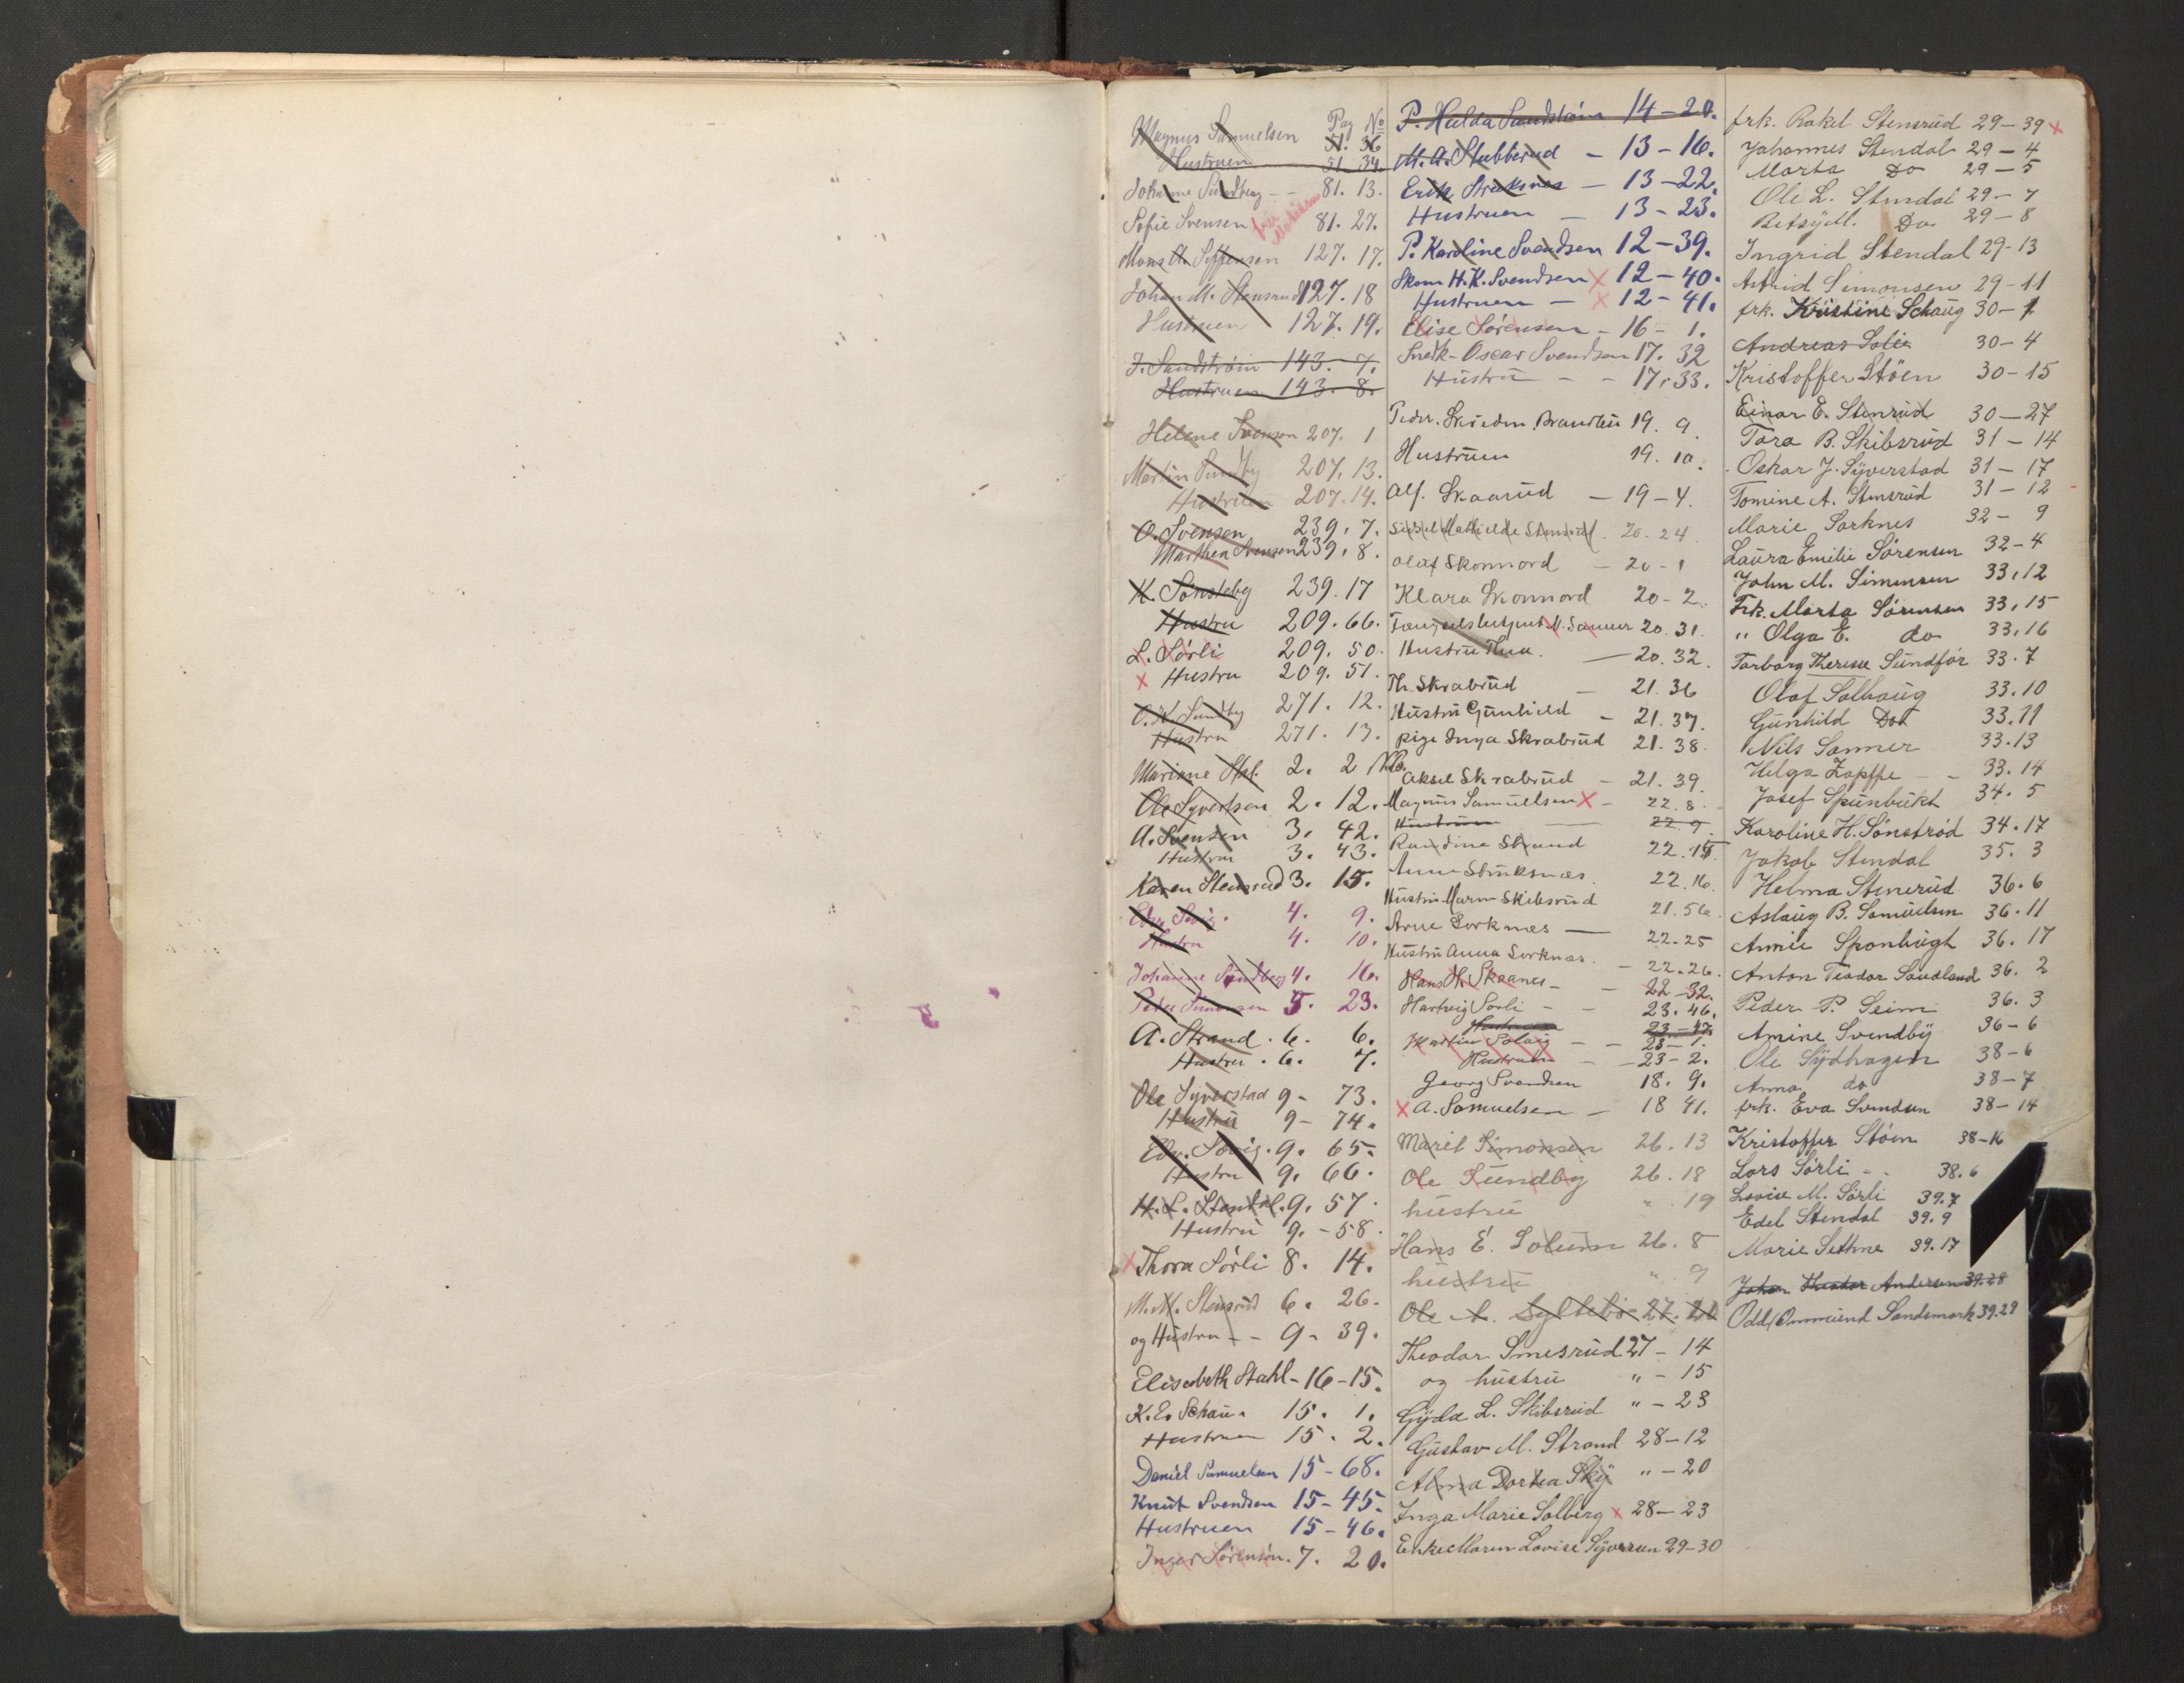 Pag No
Magnus Samuelsen 51. 36
Hustruen 51. 34.
Johanne Sundberg - - 81. 13.
Sofie Svensen 81. 27.
Mons A. Steffensen 127. 17.
Johan M. Stensrud 127. 18
Hustruen 127. 19.
J. Sandstrøm 143. 7.
Hustruen 143. 8.
Helene Svensen 207. 1
Martin Sundby 207. 13.
Hustruen 207. 14.
O. Svensen 239. 7.
Marthea Svensen 239. 8.
K. Sønsteby 239. 17
Hustru 209. 66.
L. Sørli 209. 50.
x Hustru 209. 51.
O. K. Sundby 271. 12.
Hustru 271. 13.
Mariane 2. 2
Ole Syvertsen 2. 12.
A. Svensen 3. 42.
Hustru 3. 43.
Karen Stensrud 3. 15.
Edv. Solvig. 4. 9.
Hustru 4. 10.
Johanne Sundberg 4. 16.
Peder Simonsen 5. 23.
A. Strand. 6. 6.
Hustru. 6. 7.
Ole Syverstad 9 - 73.
Hustru 9 - 74.
Edv. Solvig. 9. 65.
Hustru 9. 66.
H. L. Stendal. 9. 57.
Hustru 9. - 58.
x Thora Sørli 8. 14.
M. M. Stensrud 6. 26.
og Hustru - - 9 - 39.
Elisabeth Stahl - 16 - 15.
K. E. Schau. 15. 1.
Hustruen 15. 2.
Daniel Samuelsen 15 - 68.
Knut Svendsen 15 - 45.
Hustruen 15 - 46.
Inger Sørensen. 7. 20.
P. Hulda Sandstrøm 14 - 20.
M. A. Stubberud - 13 - 16.
Erik Struksnes - 13 - 22.
Hustruen - 13 - 23.
P. Karoline Svendsen 12 - 39.
Skom H. K. Svendsen x 12 - 40.
Hustruen - x 12 - 41.
Elise Sørensen - 16 - 1.
Snedk - Oscar Svendsen 17. 32
Hustru - - 17. 33.
Peder. Skredm. Brandbu 19. 9.
Hustruen 19. 10.
Alf. Skaarud - 19 - 4.
Sidsel Mathilde Stensrud. 20. 24
Olaf Skonnord - 20 - 1
Klara Skonnord 20 - 2.
Fængselsbetjent N. Sanner 20. 31.
Hustru Thea. - 20. 32.
Th. Skrabrud - 21. 36
Hustru Gunhild - 21. 37.
pige Inga Skrabrud 21. 38.
Aksel Skrabrud - 21. 39.
Magnus Samuelsen x - 22. 8.
Hustruen - 22. 9.
Randine Strand 22. 15.
Anne Struksnæs. 22. 16.
Hustru Maren Skibsrud 21. 56.
Arne Sorknes - 22 - 25
Hustru Anna Sorknæs. - 22. 26.
Hans H. Skaanes - - 22 - 32.
Hartvig Sørli - - 23. 46.
Hustruen 23 - 47.
Martin Solvig - - 23 - 1.
Hustruen - 23 - 2.
Georg Svendsen 18. 9.
x A. Samuelsen - 18 41.
Marit Simonsen 26. 13
Ole Sundby 26. 18
hustru " 19
Hans E. Solum 26. 8
hustru " 9
Ole A. Syltebø 27. 20
Theodor Smesrud 27 - 14
og hustru " - 15
Gyda L. Skibsrud " - 23
Gustav M. Strand 28 - 12
Alma Dortea Sky " - 20
Inga Marie Solberg x 28 - 23
Enke Maren Lovise Syversen 29 - 30
frk. Rakel Stensrud 29 - 39 x
Johannes Stendal 29 - 4
Marta Do 29 - 5
Ole L. Stendal 29 - 7
Betsy M. Do 29 - 8
Ingrid Stendal 29 - 13
Astrid Simonsen 29 - 11
frk. Kristine Schaug 30 - 1
Andreas Solie 30 - 4
Kristoffer Støen 30 - 15
Einar E. Stenrud 30 - 27
Tora B. Skibsrud 31 - 14
Oskar J. Syverstad 31 - 17
Tomine A. Stensrud 31 - 12
Marie Sorknes 32 - 9
Laura Emilie Sørensen 32 - 4
John M. Simensen 33, 12
Frk. Marta Sørensen 33, 15
" Olga E. do 33, 16
Torborg Therese Sundfør 33. 7
Olaf Solhaug 33. 10
Gunhild Do 33. 11
Nils Sanner 33. 13
Helga Zapffe - - 33. 14
Josef Spunbukt 34. 5
Karoline H. Sønstrød 34. 17
Jakob Stendal 35. 3
Helma Stenerud 36. 6
Aslaug B. Samuelsen 36. 11
Annie Sponhugh 36. 17
Anton Teodor Sandland 36. 2
Peder P. Seim 36. 3
Amine Svendby 36 - 6
Ole Sydhagen 38 - 6
Anna do 38 - 7
frk. Eva Svendsen 38 - 14
Kristoffer Støen 38 - 16
Lars Sørli - . 38. 6
Lovise M. Sørli 39. 7
Edel Stendal 39. 9
Marie Sethne 39. 17
Johan Teodor Andersen 39. 28
Odd Ommund Sandsmark 39. 29